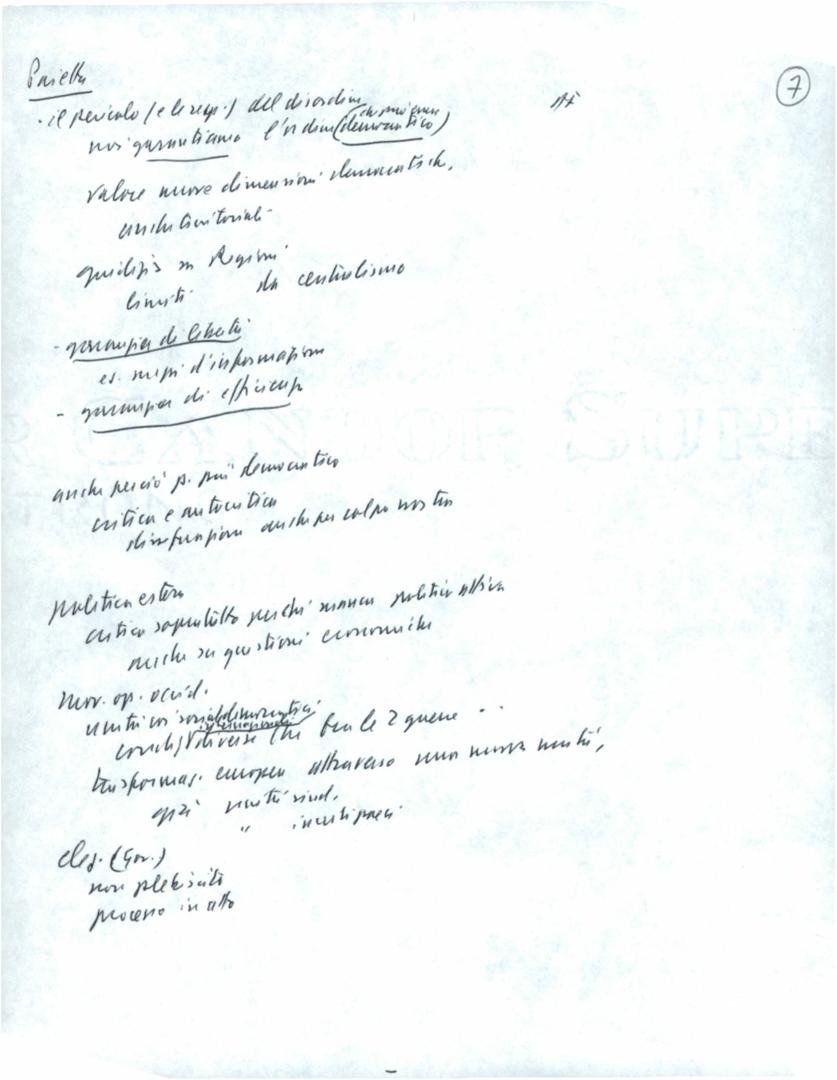 Pajetta
7
- il pericolo (e le resp.) del disordine
noi garantiamo l'ordine (democratico)
valore nuove dimensioni democratiche,
anche territoriali
giudizio su Regioni
limiti da centralismo
- garanzia di libertà
es. mezzi d'informazione
- garanzia di efficienza
anche perciò p. più democratico
critica e autocritica
disfunzioni anche per colpa nostra
politica estera
critica soprattutto perché manca politica attiva
anche su questioni economiche
mov. op. occid.
unità coi socialdemocratici
condiz. internazionali diverse che fra le 2 guerre
trasformaz. europea attraverso una nuova unità,
già unità sind.
" in certi paesi
elez. (Gov.)
non plebiscito
processo in atto